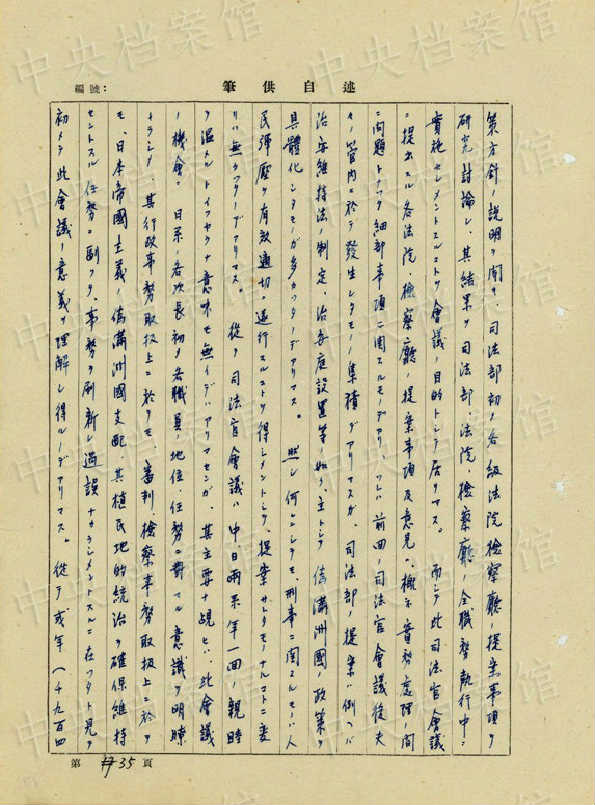 中央档案馆
編號：
筆供自述
策方針ノ説明ヲ聞キ、司法部初メ各級法院檢察廳ノ提案事項ヲ
研究討論シ、其結果ヲ司法部、法院、檢察廳ノ全職務執行中ニ
實施セシメントスルコトヲ會議ノ目的トシテ居リマス。而シテ此司法官會議
ニ提出スル各法院、檢察廳ノ提案事項及意見ハ、概ネ審務處理ノ間
ニ問題トナツタ細部事項ニ関スルモノデアリ、ソレハ前回ノ司法官會議後夫
々ノ管内ニ於テ發生シタモノノ集積デアリマスガ、司法部ノ提案ハ例ヘバ
治安維持法ノ制定、治安庭設置等ノ如ク、主トシテ偽満洲國ノ政策ヲ
具體化シタモノガ多カツタノデアリマス。然シ何レニシテモ、刑事ニ関スルモノハ人
民彈壓ヲ有效適切ニ遂行スルコトヲ得シメントシテ、提案サレタモノナルコトニ変
リハ無カツタノデアリマス。從テ司法官會議ハ中日兩系年一回ノ親睦
ヲ温メルトイフヤウナ意味モ無イデハアリマセンガ、其主要ナ点ハ、此會議
ノ機會ニ日系ノ各次長初メ各職員ノ地位、任務ニ對スル意識ヲ明瞭
ナラシメ、其行政事務取扱上ニ於テモ、審判、檢察事務取扱上ニ於テ
モ、日本帝國主義ノ偽満洲國支配、其植民地的統治ヲ確保維持
セントスル任務ニ副フタ、事務ヲ刷新シ過誤ナカラシメントスルニ在ツタト見テ
初メテ此會議ノ意義ヲ理解シ得ルノデアリマス。從テ或年（一千九百四
第35頁